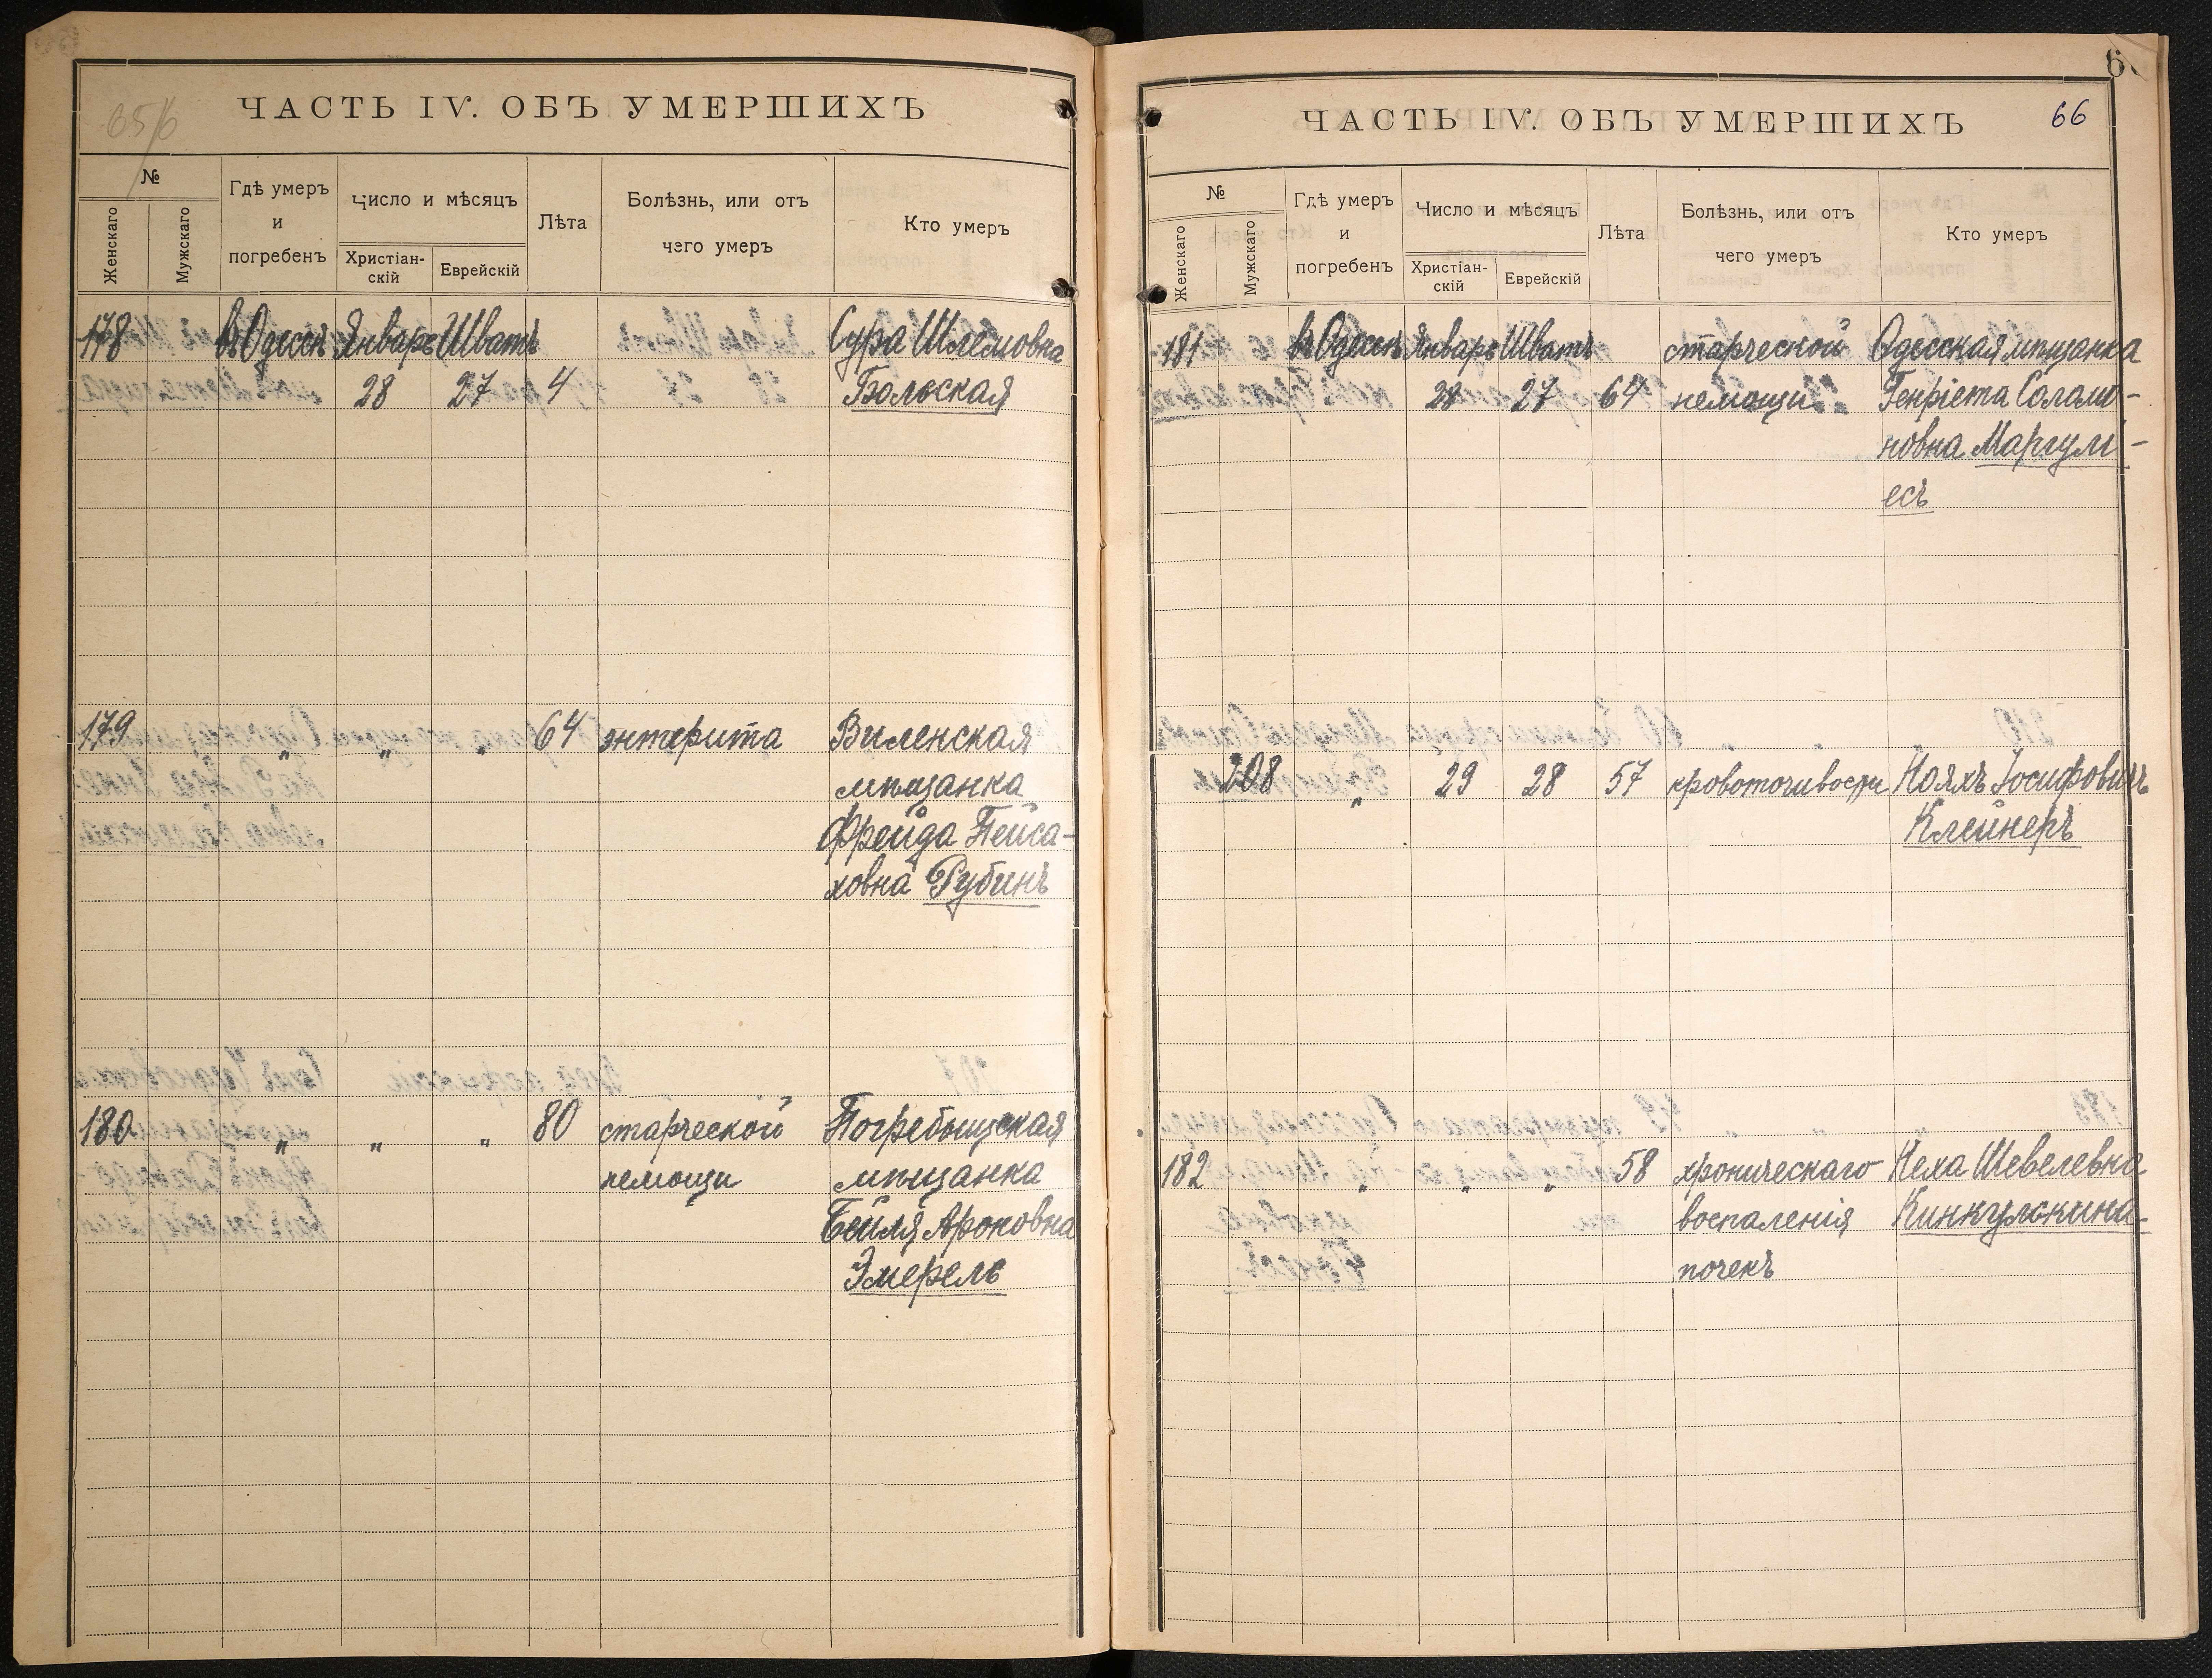 65/6
ЧАСТЬ IV. ОБЪ УМЕРШИХЪ
№
Женскаго
Мужскаго
Гдѣ умеръ
и
погребенъ
Число и мѣсяцъ
Христіан-
скій
Еврейскій
Лѣта
Болѣзнь, или отъ
чего умеръ
Кто умеръ
178 въ Одессѣ Январь Шватъ Сура Шлемовна
28 27 4 Бѣльская
179 „ „ „ 64 энтерита Виленская
мѣщанка
Фрейда Пейса-
ховна Рубинъ
180 „ „ „ 80 старческой Погребыщская
немощи мѣщанка
Бейля Ароновна
Эмерель
ЧАСТЬ IV. ОБЪ УМЕРШИХЪ
66
№
Женскаго
Мужскаго
Гдѣ умеръ
и
погребенъ
Число и мѣсяцъ
Христіан-
скій
Еврейскій
Лѣта
Болѣзнь, или отъ
чего умеръ
Кто умеръ
181 въ Одессѣ Январь Шватъ старческой Одесская мѣщанка
28 27 64 немощи Генріета Соломо-
новна Маргулі-
есъ
208 „ 29 28 57 кровоточивости Нояхъ Іосифовичъ
Клейнеръ
182 „ „ „ 58 хроническаго Неха Шевелевна
воспаленія Кинкулькина
почекъ